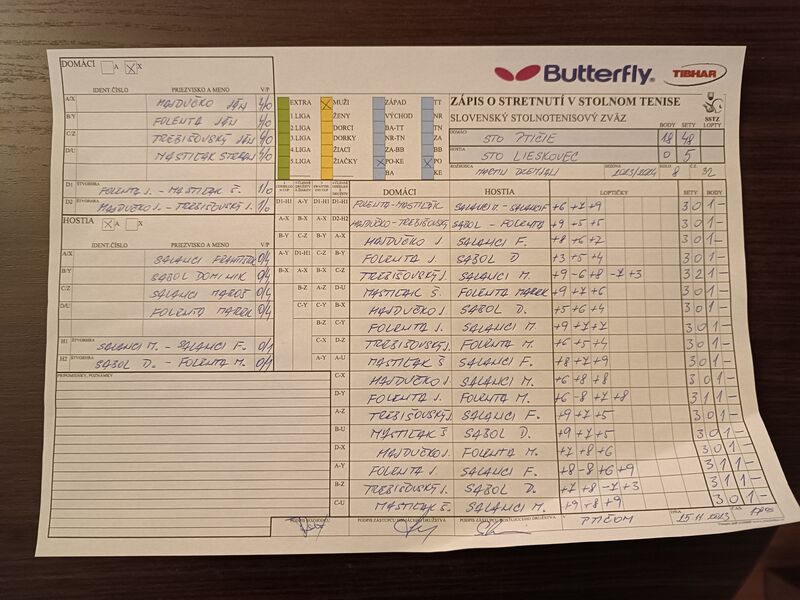 DOMÁCI A X
Butterfly.
TIBHAR
IDENT.ČÍSLO PRIEZVISKO A MENO V/P
A/X HAJDUČKO JÁN 4/0
B/Y FOLENTA JÁN 4/0
C/Z TREBIŠOVSKÝ JÁN 4/0
D/U MASTIĽAK ŠTEFAN 4/0
D1 ŠTVORHRA FOLENTA J. - MASTIĽAK Š. 1/0
D2 HAJDUČKO J. - TREBIŠOVSKÝ J. 1/0
HOSTIA X
IDENT.ČÍSLO PRIEZVISKO A MENO V/P
A/X SALANCI FRANTIŠEK 0/4
B/Y SABOL DOMINIK 0/4
C/Z SALANCI MAROŠ 0/4
D/U FOLENTA MAREK 0/4
H1 ŠTVORHRA SALANCI M. - SALANCI F. 0/1
H2 ŠTVORHRA SABOL D. - FOLENTA M. 0/1
PRIPOMIENKY, POZNÁMKY
EXTRA MUŽI ZÁPAD TT
1.LIGA ŽENY VÝCHOD NR
2.LIGA DORCI BA-TT TN
3.LIGA DORKY NR-TN ZA
4.LIGA ŽIACI ZA-BB BB
5.LIGA ŽIAČKY PO-KE PO
BA KE
ZÁPIS O STRETNUTÍ V STOLNOM TENISE
SLOVENSKÝ STOLNOTENISOVÝ ZVÄZ
SSTZ
DOMÁCI STO PTIČIE
HOSTIA STO LIESKOVEC
BODY SETY LOPTY
18 48
0 5
ROZHODCA SEZÓNA 2023/2024 KOLO 8 Č.Z. 32
DOMÁCI HOSTIA LOPTIČKY SETY BODY
FOLENTA-MASTIĽAK SALANCI M-SALANCI F +6 +7 +9 3 0 1 -
HAJDUČKO-TREBIŠOVSKÝ SABOL - FOLENTA +9 +5 +5 3 0 1 -
HAJDUČKO J. SALANCI F. +8 +6 +2 3 0 1 -
FOLENTA J. SABOL D +3 +5 +4 3 0 1 -
TREBIŠOVSKÝ J. SALANCI M. +9 -6 +8 -7 +3 3 2 1 -
MASTIĽAK Š. FOLENTA MAREK +9 +7 +6 3 0 1 -
HAJDUČKO J. SABOL D. +5 +6 +4 3 0 1 -
FOLENTA J. SALANCI M. +9 +7 +7 3 0 1 -
TREBIŠOVSKÝ J. FOLENTA M. +6 +5 +4 3 0 1 -
MASTIĽAK Š SALANCI F. +8 +7 +9 3 0 1 -
C-X HAJDUČKO J. SALANCI M. +6 +8 +8 3 0 1 -
D-Y FOLENTA J. FOLENTA M. +6 -8 +7 +8 3 1 1 -
A-Z TREBIŠOVSKÝ J. SALANCI F. +9 +7 +5 3 0 1 -
B-U MASTIĽAK Š SABOL D. +9 +7 +5 3 0 1 -
D-X HAJDUČKO J. FOLENTA M. +7 +6 +8 3 0 1 -
A-Y FOLENTA J. SALANCI F. +8 -8 +6 +9 3 1 1 -
B-Z TREBIŠOVSKÝ J. SABOL D. +7 +8 -7 +3 3 1 1 -
C-U MASTIĽAK Š. SALANCI M. +9 +8 +9 3 0 1 -
PODPIS ROZHODCU PODPIS ZÁSTUPCU DOMÁCEHO DRUŽSTVA PODPIS ZÁSTUPCU HOSŤUJÚCEHO DRUŽSTVA